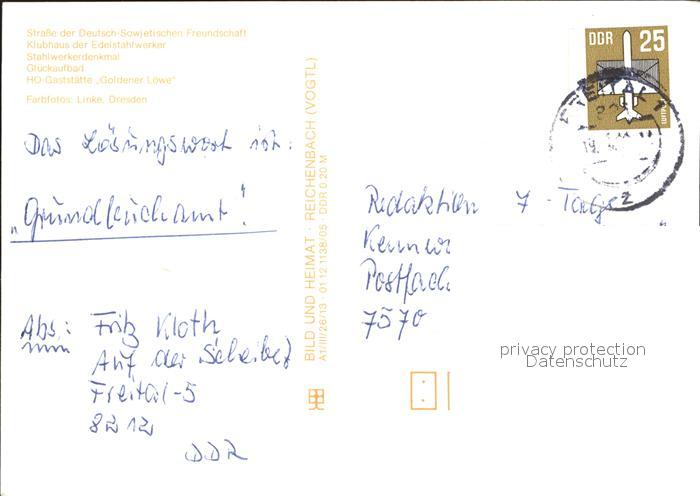 Straße der Deutsch-Sowjetischen Freundschaft
Klubhaus der Edelstahlwerker
Stahlwerkerdenkmal
Glückaufbad
HO-Gaststätte „Goldener Löwe"
Farbfotos: Linke, Dresden
Das Lösungswort ist:
Abs:
Fritz Kloth
Auf der Scheibe 7
Freital-5
8212
DDR
BILD UND HEIMAT · REICHENBACH (VOGTL)
A1/III/26/13 · 01 12 1138/05 · DDR 0.20 M
DDR 25
Redaktion 7-Tage
Postfach
7570
privacy protection
Datenschutz